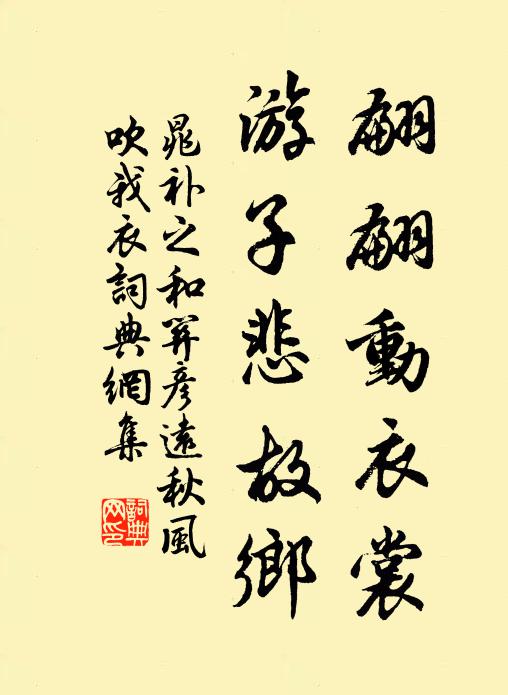 翩翩動衣裳
游子悲故鄉
晁补之和關彦遠秋風
吹我衣詞典網集
詞典
网印